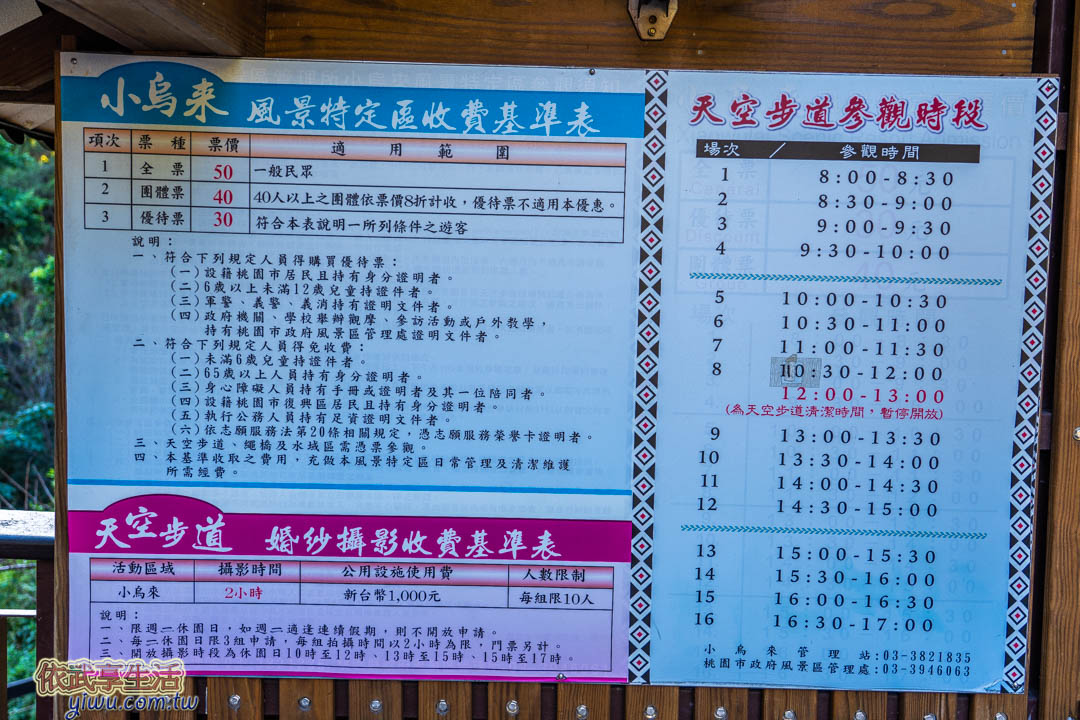 小烏來 風景特定區收費基準表
項次 票種 票價 適用範圍
1 全票 50 一般民眾
2 團體票 40 40人以上之團體依票價8折計收，優待票不適用本優惠。
3 優待票 30 符合本表說明一所列條件之遊客
說明：
一、符合下列規定人員得購買優待票：
(一)設籍桃園市居民且持有身分證明者。
(二)6歲以上未滿12歲兒童持證件者。
(三)軍警、義警、義消持有證明文件者。
(四)政府機關、學校舉辦觀摩、參訪活動或戶外教學，
持有桃園市政府風景區管理處證明文件者。
二、符合下列規定人員得免收費：
(一)未滿6歲兒童持證件者。
(二)65歲以上人員持有身分證明者。
(三)身心障礙人員持有手冊或證明者及其一位陪同者。
(四)設籍桃園市復興區居民且持有身分證明者。
(五)執行公務人員持有足資證明文件者。
(六)依志願服務法第20條相關規定，憑志願服務榮譽卡證明者。
三、天空步道、繩橋及水域區需憑票參觀。
四、本基準收取之費用，充做本風景特定區日常管理及清潔維護
所需經費。
天空步道 婚紗攝影收費基準表
活動區域 攝影時間 公用設施使用費 人數限制
小烏來 2小時 新台幣1,000元 每組限10人
說明：
一、限週一休園日，如週一適逢連續假期，則不開放申請。
二、每一休園日限3組申請，每組拍攝時間以2小時為限，門票另計。
三、開放攝影時段為休園日10時至12時、13時至15時、15時至17時。
天空步道參觀時段
場次 / 參觀時間
1 8:00-8:30
2 8:30-9:00
3 9:00-9:30
4 9:30-10:00
5 10:00-10:30
6 10:30-11:00
7 11:00-11:30
8 :30-12:00
12:00-13:00
(為天空步道清潔時間，暫停開放)
9 13:00-13:30
10 13:30-14:00
11 14:00-14:30
12 14:30-15:00
13 15:00-15:30
14 15:30-16:00
15 16:00-16:30
16 16:30-17:00
小烏來管理站:03-3821835
桃園市政府風景區管理處:03-3946063
依武享生活
yiwu.com.tw